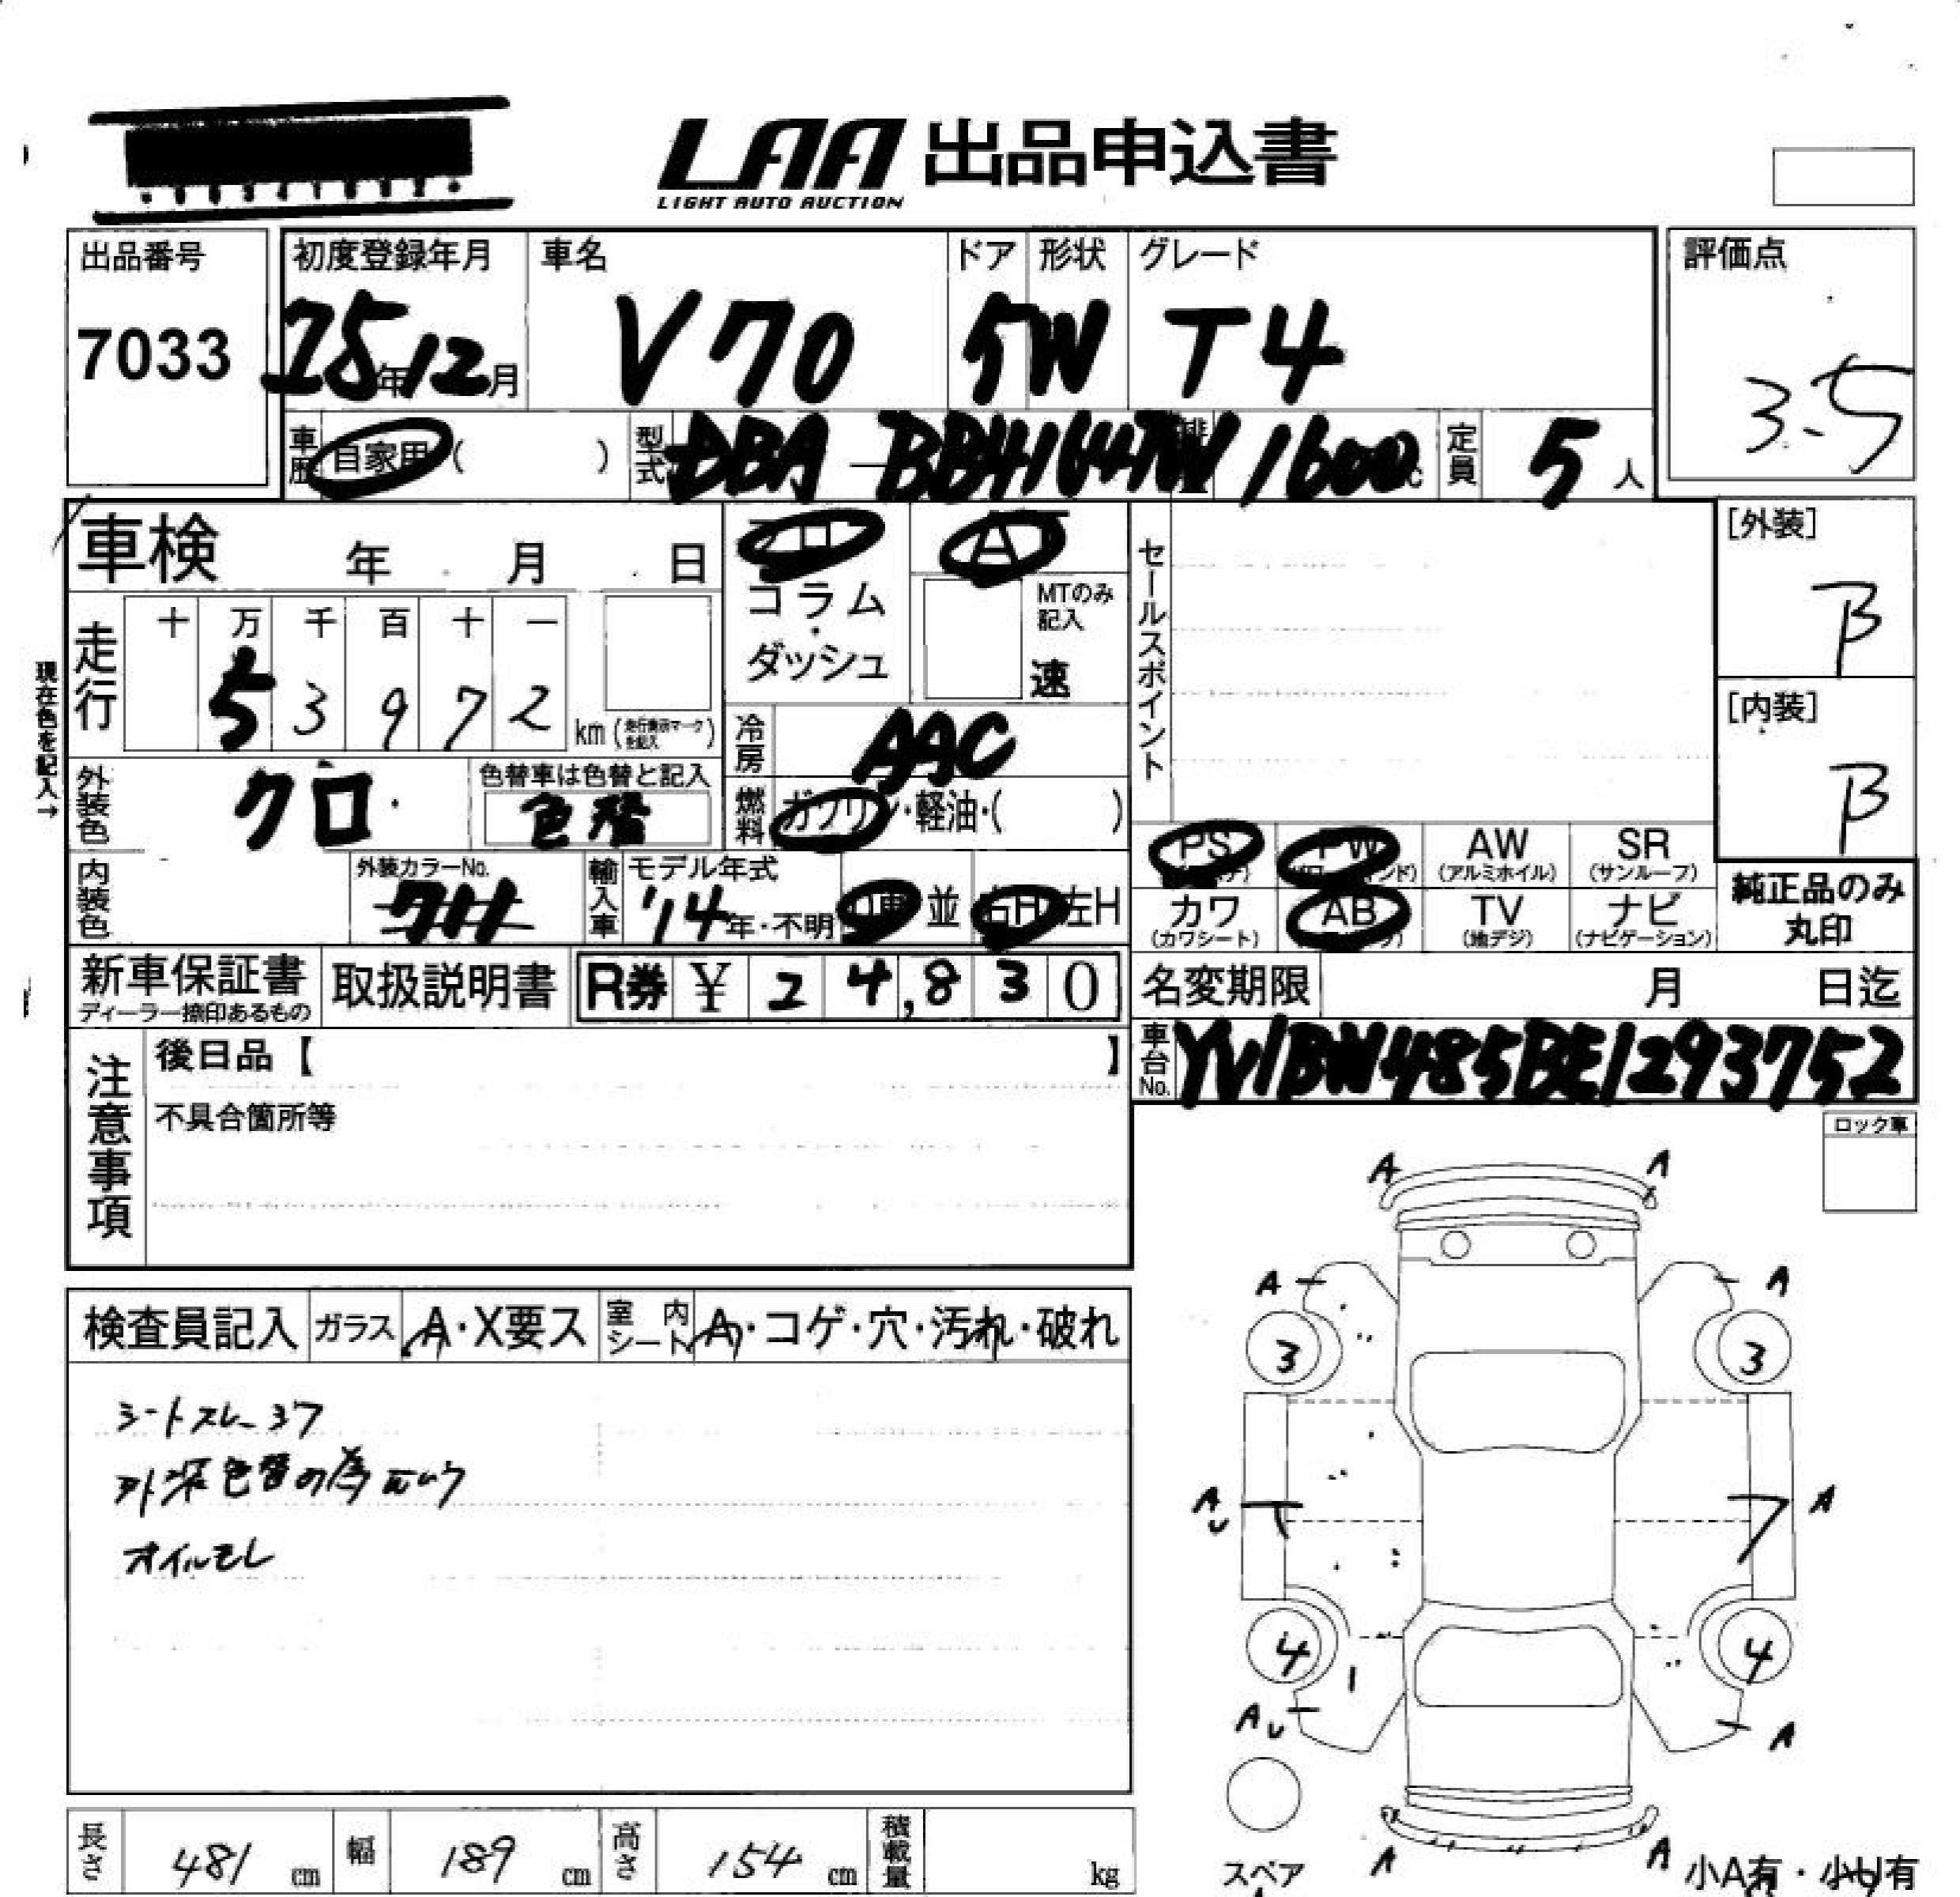 LAA 出品申込書
LIGHT AUTO AUCTION
出品番号 初度登録年月 車名 ドア 形状 グレード 評価点
7033 25年12月 V70 5 W T4 3.5
車歴 自家用 ( ) 型式 DBA-BB4164TW 1600 定員 5 人
車検 年 月 日 フロ A
コラム・ MTのみ 記入
ダッシュ 速
セールスポイント
[外装]
B
[内装]
B
現在色を記入→
走行 十 万 千 百 十 一
5 3 9 7 2 km (走行表示マークを記入)
冷房 AAC
外装色 クロ 色替車は色替と記入
色替
燃料 ガソリン・軽油・( )
内装色 外装カラーNo. 輸入車 モデル年式
'14年・不明 並 右H 左H
PS PW AW SR
(アルミホイル) (サンルーフ)
カワ AB TV ナビ
(カワシート) (地デジ) (ナビゲーション)
純正品のみ
丸印
新車保証書 取扱説明書 R券 ¥ 24,830
ディーラー捺印あるもの
名変期限 月 日迄
車台No. YV1BW485BE1293752
注意事項
後日品【 】
不具合箇所等
ロック車
検査員記入 ガラス A・X要ス 室内シート A・コゲ・穴・汚れ・破れ
シートスレ
外装色替の為
オイルモレ
A A
A A
3 3
AU A
4 4
AU A
A A
スペア
小A有・小U有
長さ 481 cm 幅 189 cm 高さ 154 cm 積載量 kg